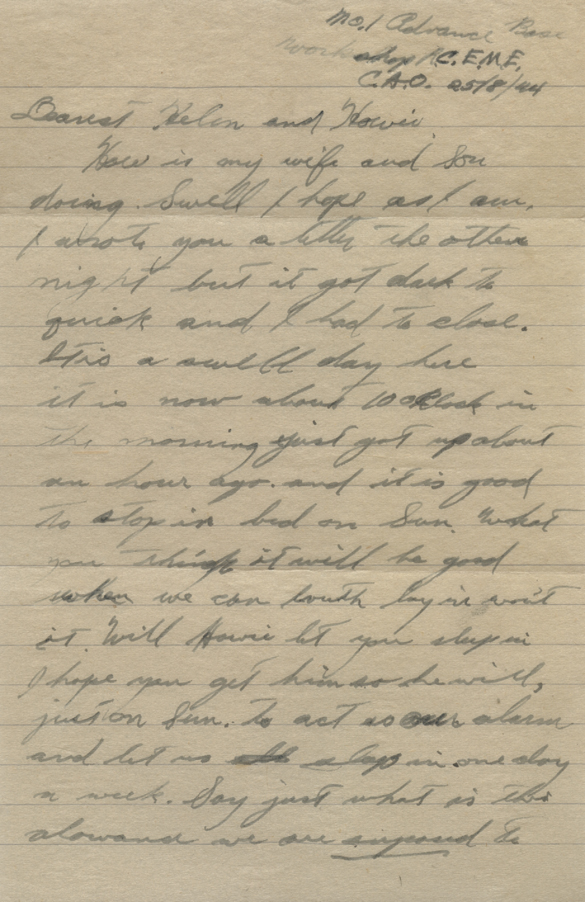 No.1 Advance Base
Workshop R.C.E.M.E.
C.A.O. 25/8/44
Dearest Helen and Howie
How is my wife and Son
doing. Swell I hope as I am.
I wrote you a letter the other
night but it got dark to
quick and I had to close.
It is a swell day here
it is now about 10 oClock in
the morning just got up about
an hour ago. and it is good
to stop in bed on Sun. What
you think it will be good
when we can bouth lay in won't
it. Will Howie let you sleep in
I hope you get him so he will,
just on Sun. to act as our alarm
and let us sleep in one day
a week. Say just what is this
alowance we are suposed to